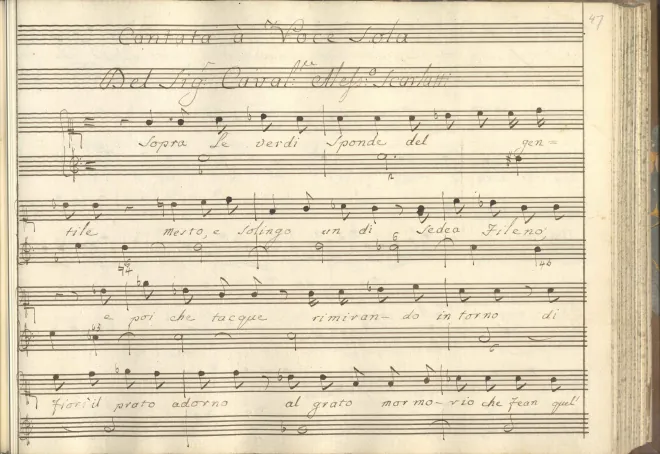 47
Cantata à Voce Sola
Del Sig.r Caval.re Aless.o Scarlatti
Sopra le verdi Sponde del gen=
tile mesto, e Solingo un di Sedea Fileno,
e poi che tacque rimiran-do intorno di
fiori il prato adorno al grato mormo-rio che fean quel